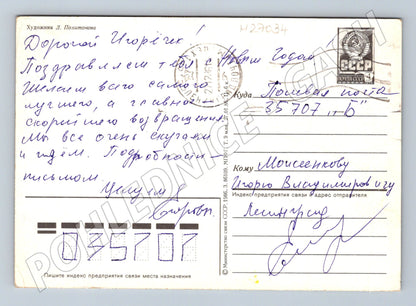 Художник Л. Похитонова
Н27034
Дорогой Игорёчек
Поздравляем тебя с Новым Годом
Желаем всего самого
лучшего, а главное
скорейшего возвращения.
Мы все очень скучаем
и ждём. Подробности
письмом
Целуем
Егоровы
Куда Полевая почта
35707 „Б"
Кому Моисеенкову
Игорю Владимировичу
Индекс предприятия связи и адрес отправителя
Ленинград
035707
Пишите индекс предприятия связи места назначения
© Министерство связи СССР.
POHLEDNICE